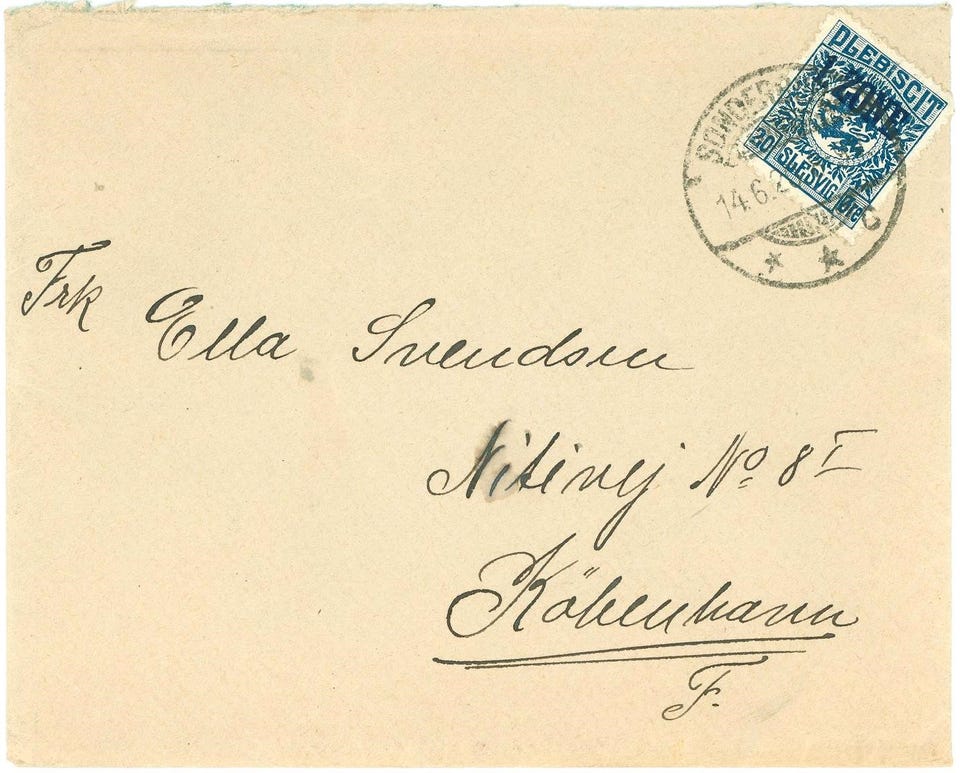 PLEBISCIT
1. ZONE
20 SLESVIG ØRE
SONDERB
14.6.2
Frk
Ella Svendsen
Nitivej No 8 I
Köbenhavn
F.